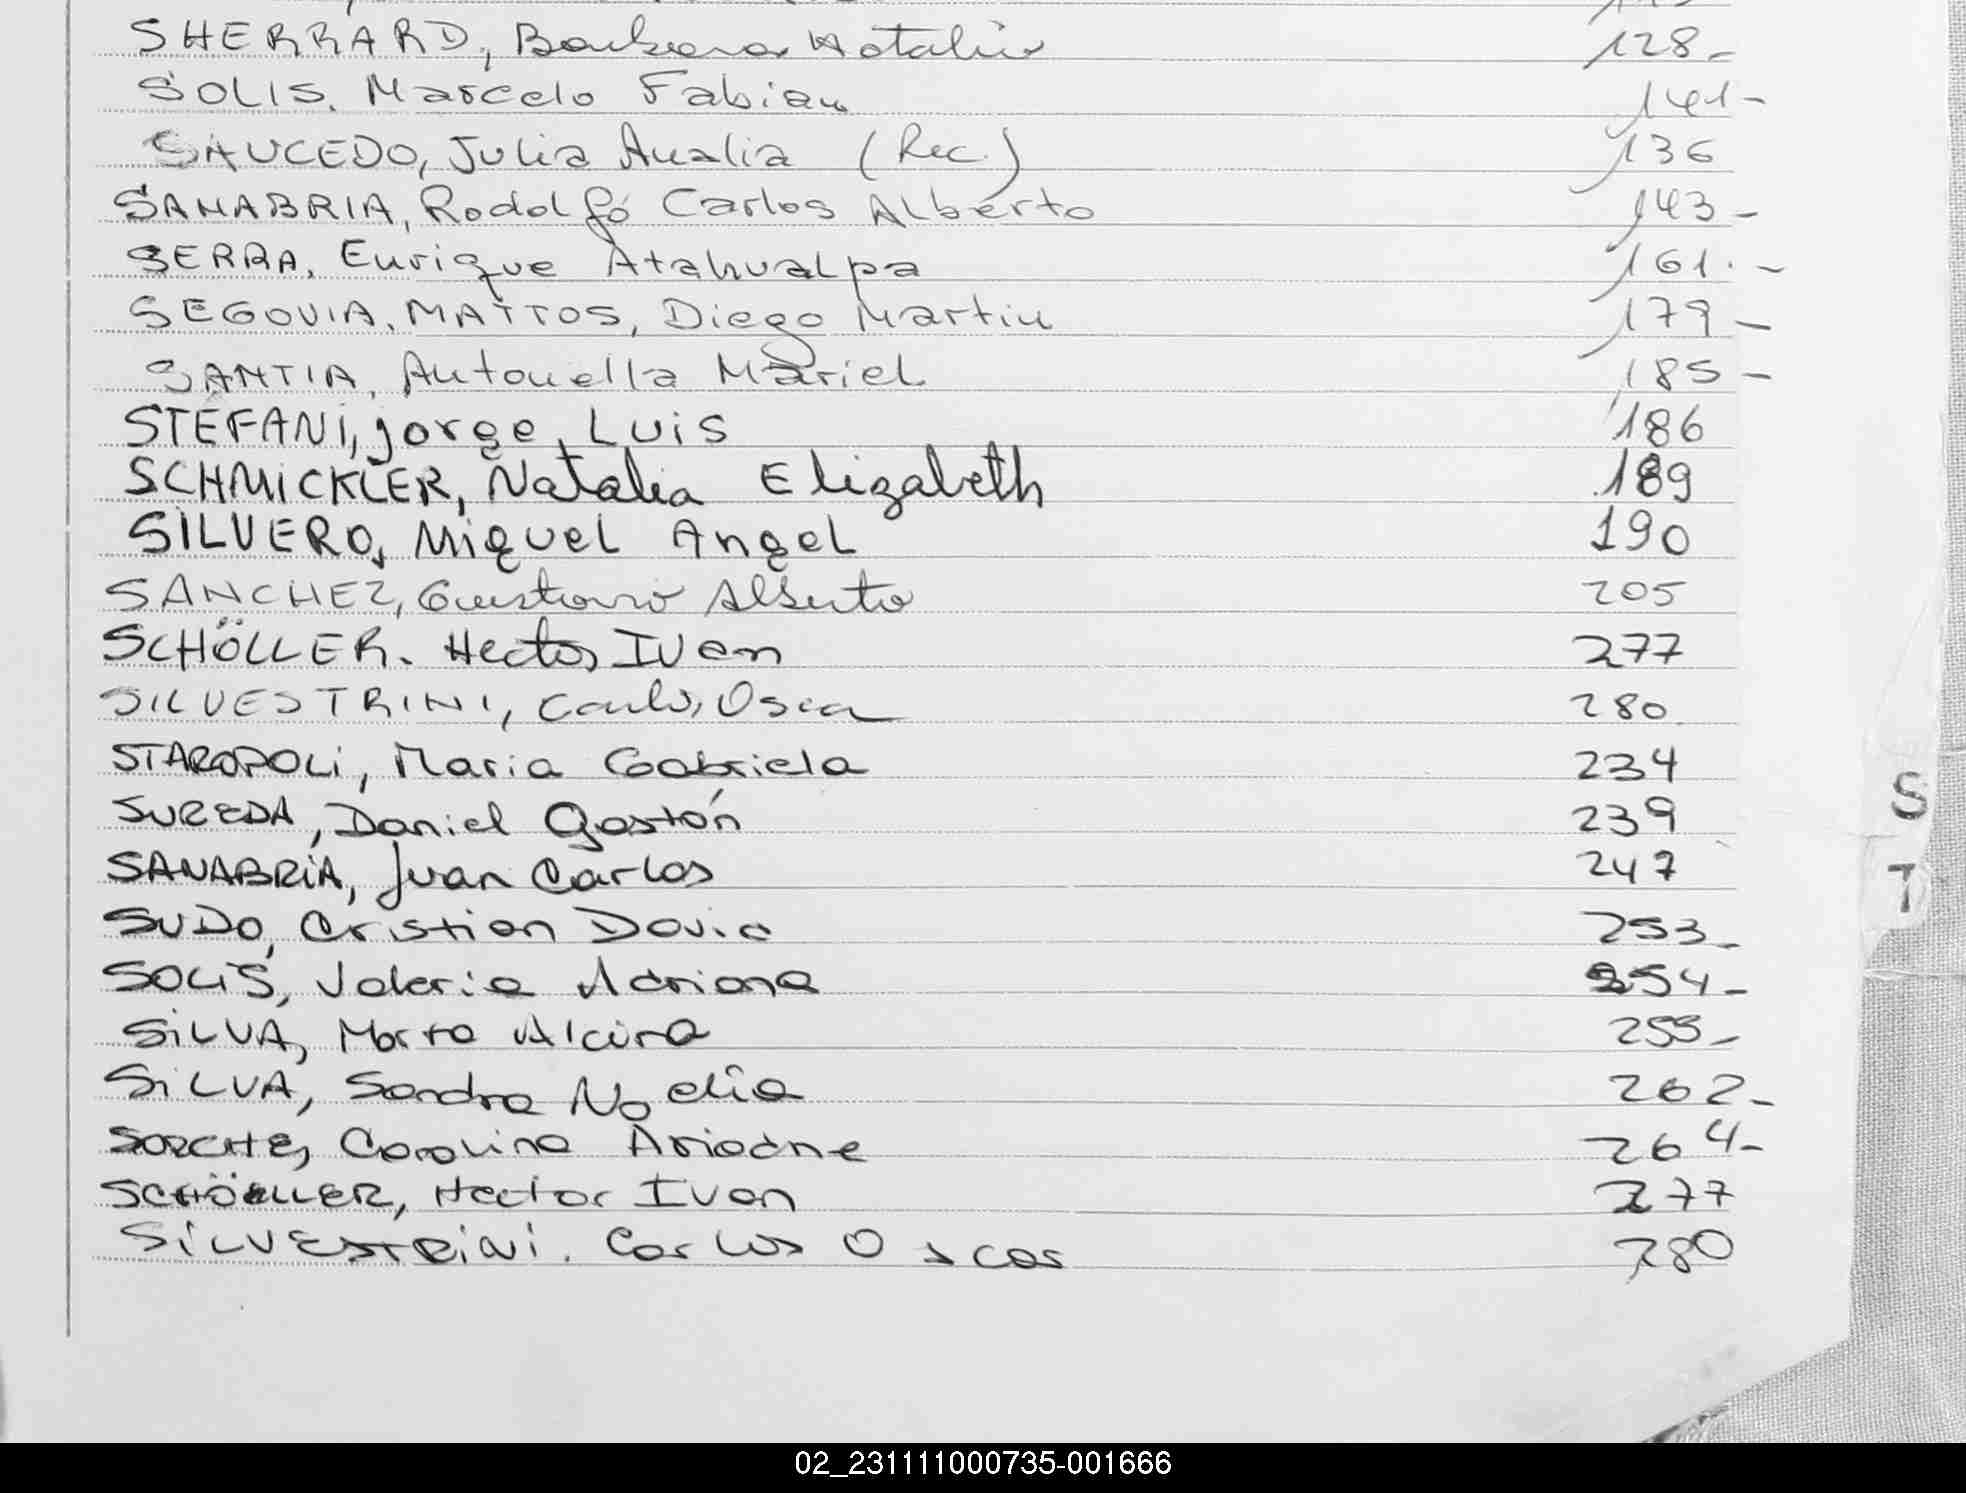 SHERRARD, Barbara Natalia 128-
SOLIS. Marcelo Fabian 141-
SAUCEDO, Julia Analia (Rec.) 136
SANABRIA, Rodolfo Carlos Alberto 143-
SERRA, Enrique Atahualpa 161.-
SEGOVIA, MATTOS, Diego Martin 179-
SANTIA, Antonella Mariel 185-
STEFANI, Jorge Luis 186
SCHMiCKLER, Natalia Elizabeth 189
SILVERO, Miguel Angel 190
SANCHEZ, Gustavo Alberto 205
SCHÖLLER. Hector Ivan 277
SILVESTRINI, Carlos Oscar 280
STAROPOLi, Maria Gabriela 234
SUREDA, Daniel Gastón 239
SANABRiA, Juan Carlos 247
SUDO, Cristian David 253-
SOLiS, Valeria Adriana 254-
S
T
SiLVA, Marta Alcira 255-
SiLVA, Sandra Noelia 262-
SORCHE, Carolina Ariadne 264-
SCHÖLLER, Hector Ivan 277
SiLVESTRiNi. Carlos Oscar 280
02_231111000735-001666